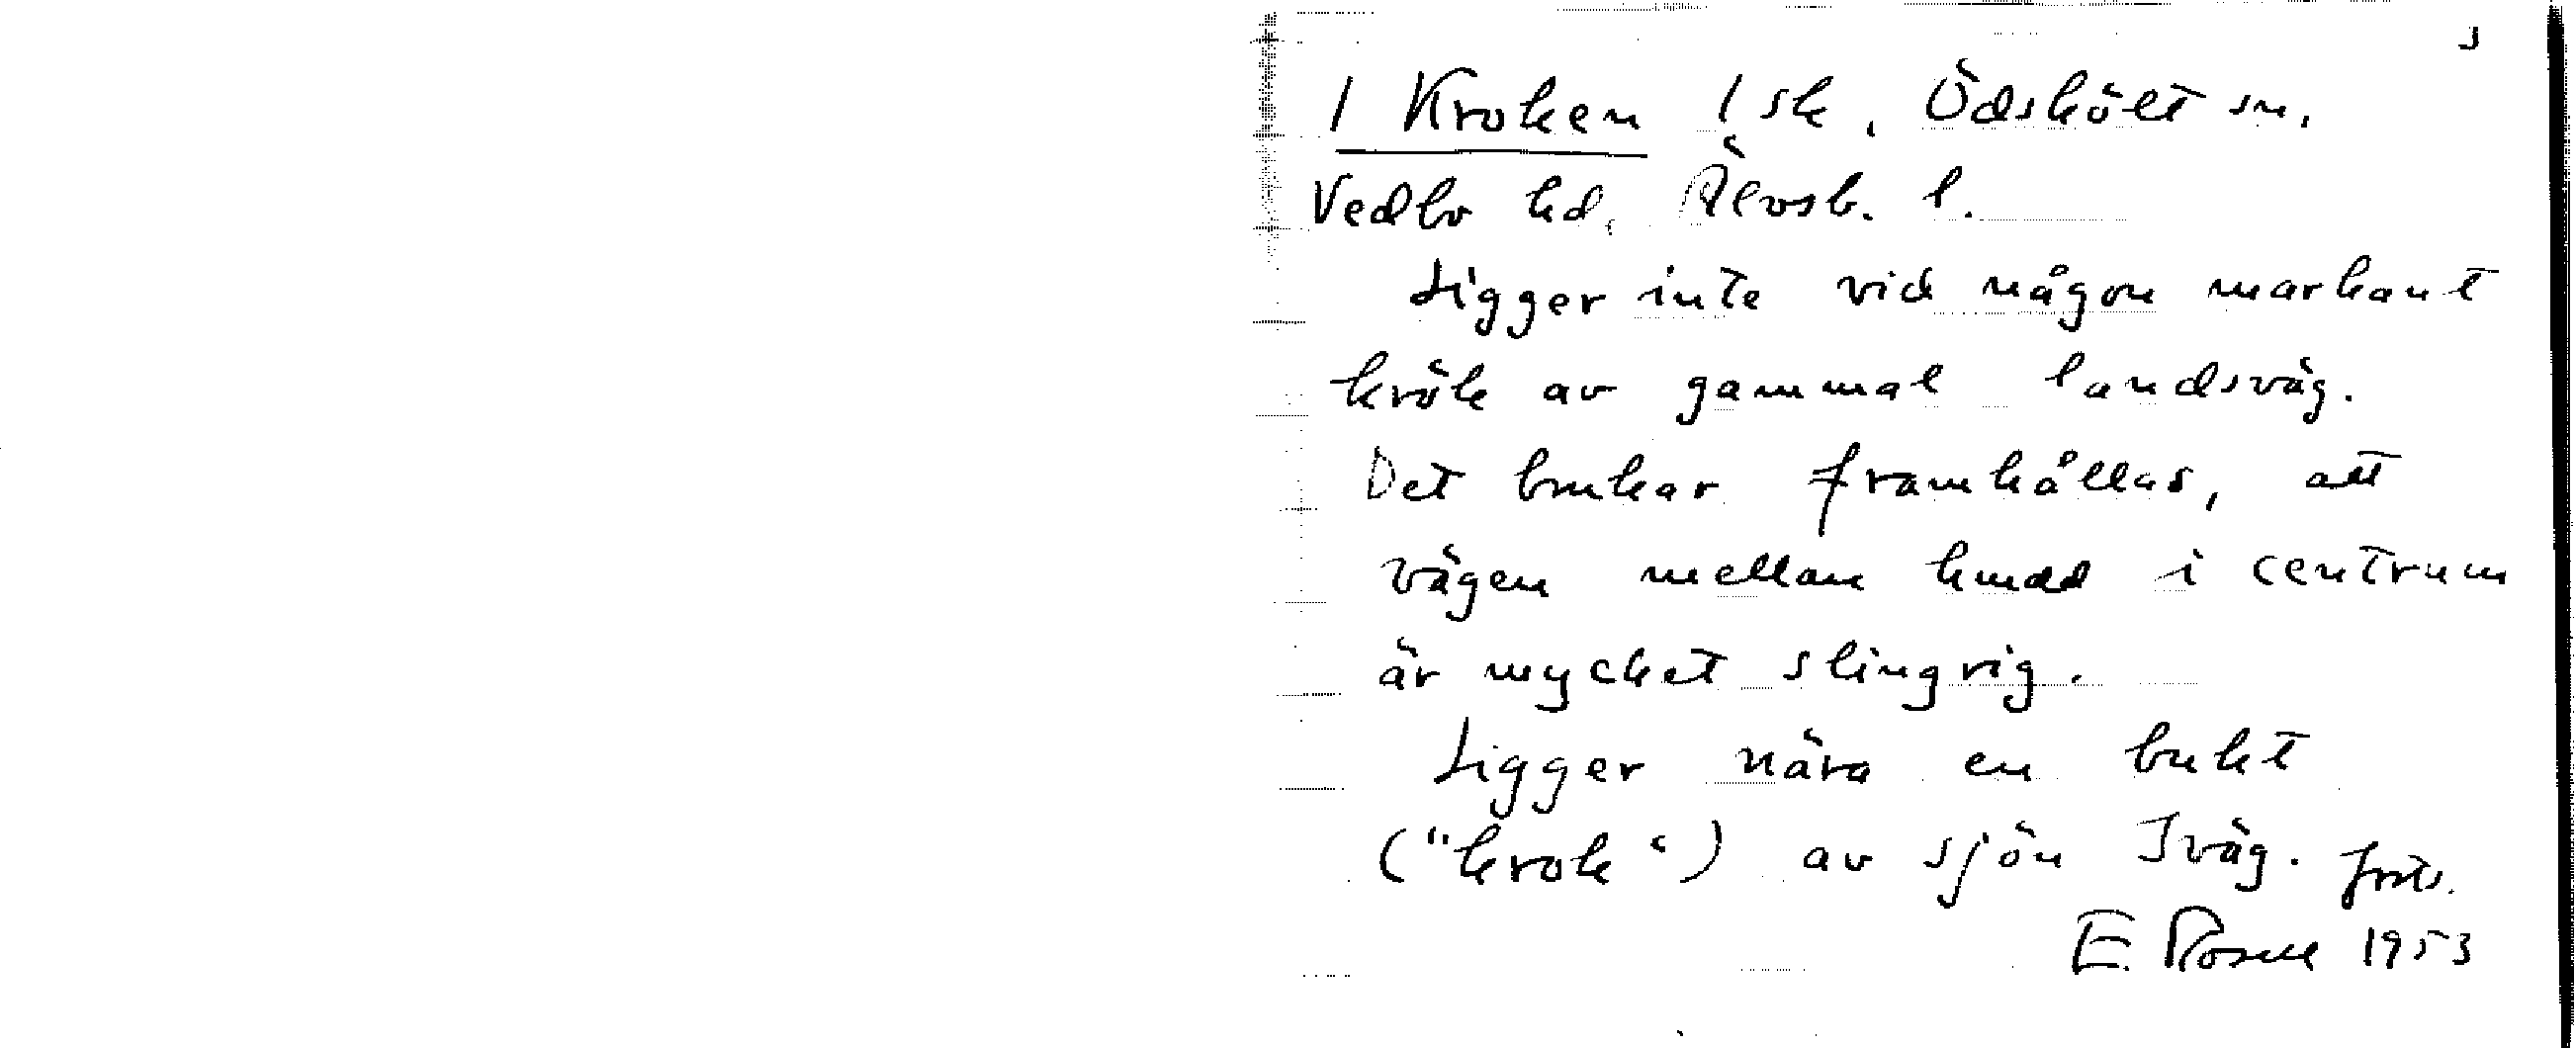 1 Kroken 1 sk. Ödskölt sn.
Vedbo hd. Älvsb. l.
Ligger inte vid någon markant
krök av gammal landsväg.
Det brukar framhållas, att
vägen mellan hmdd i centrum
är mycket slingrig.
Ligger nära en bukt
("krok") av sjön Iväg. forts.
E. Rosell 1953